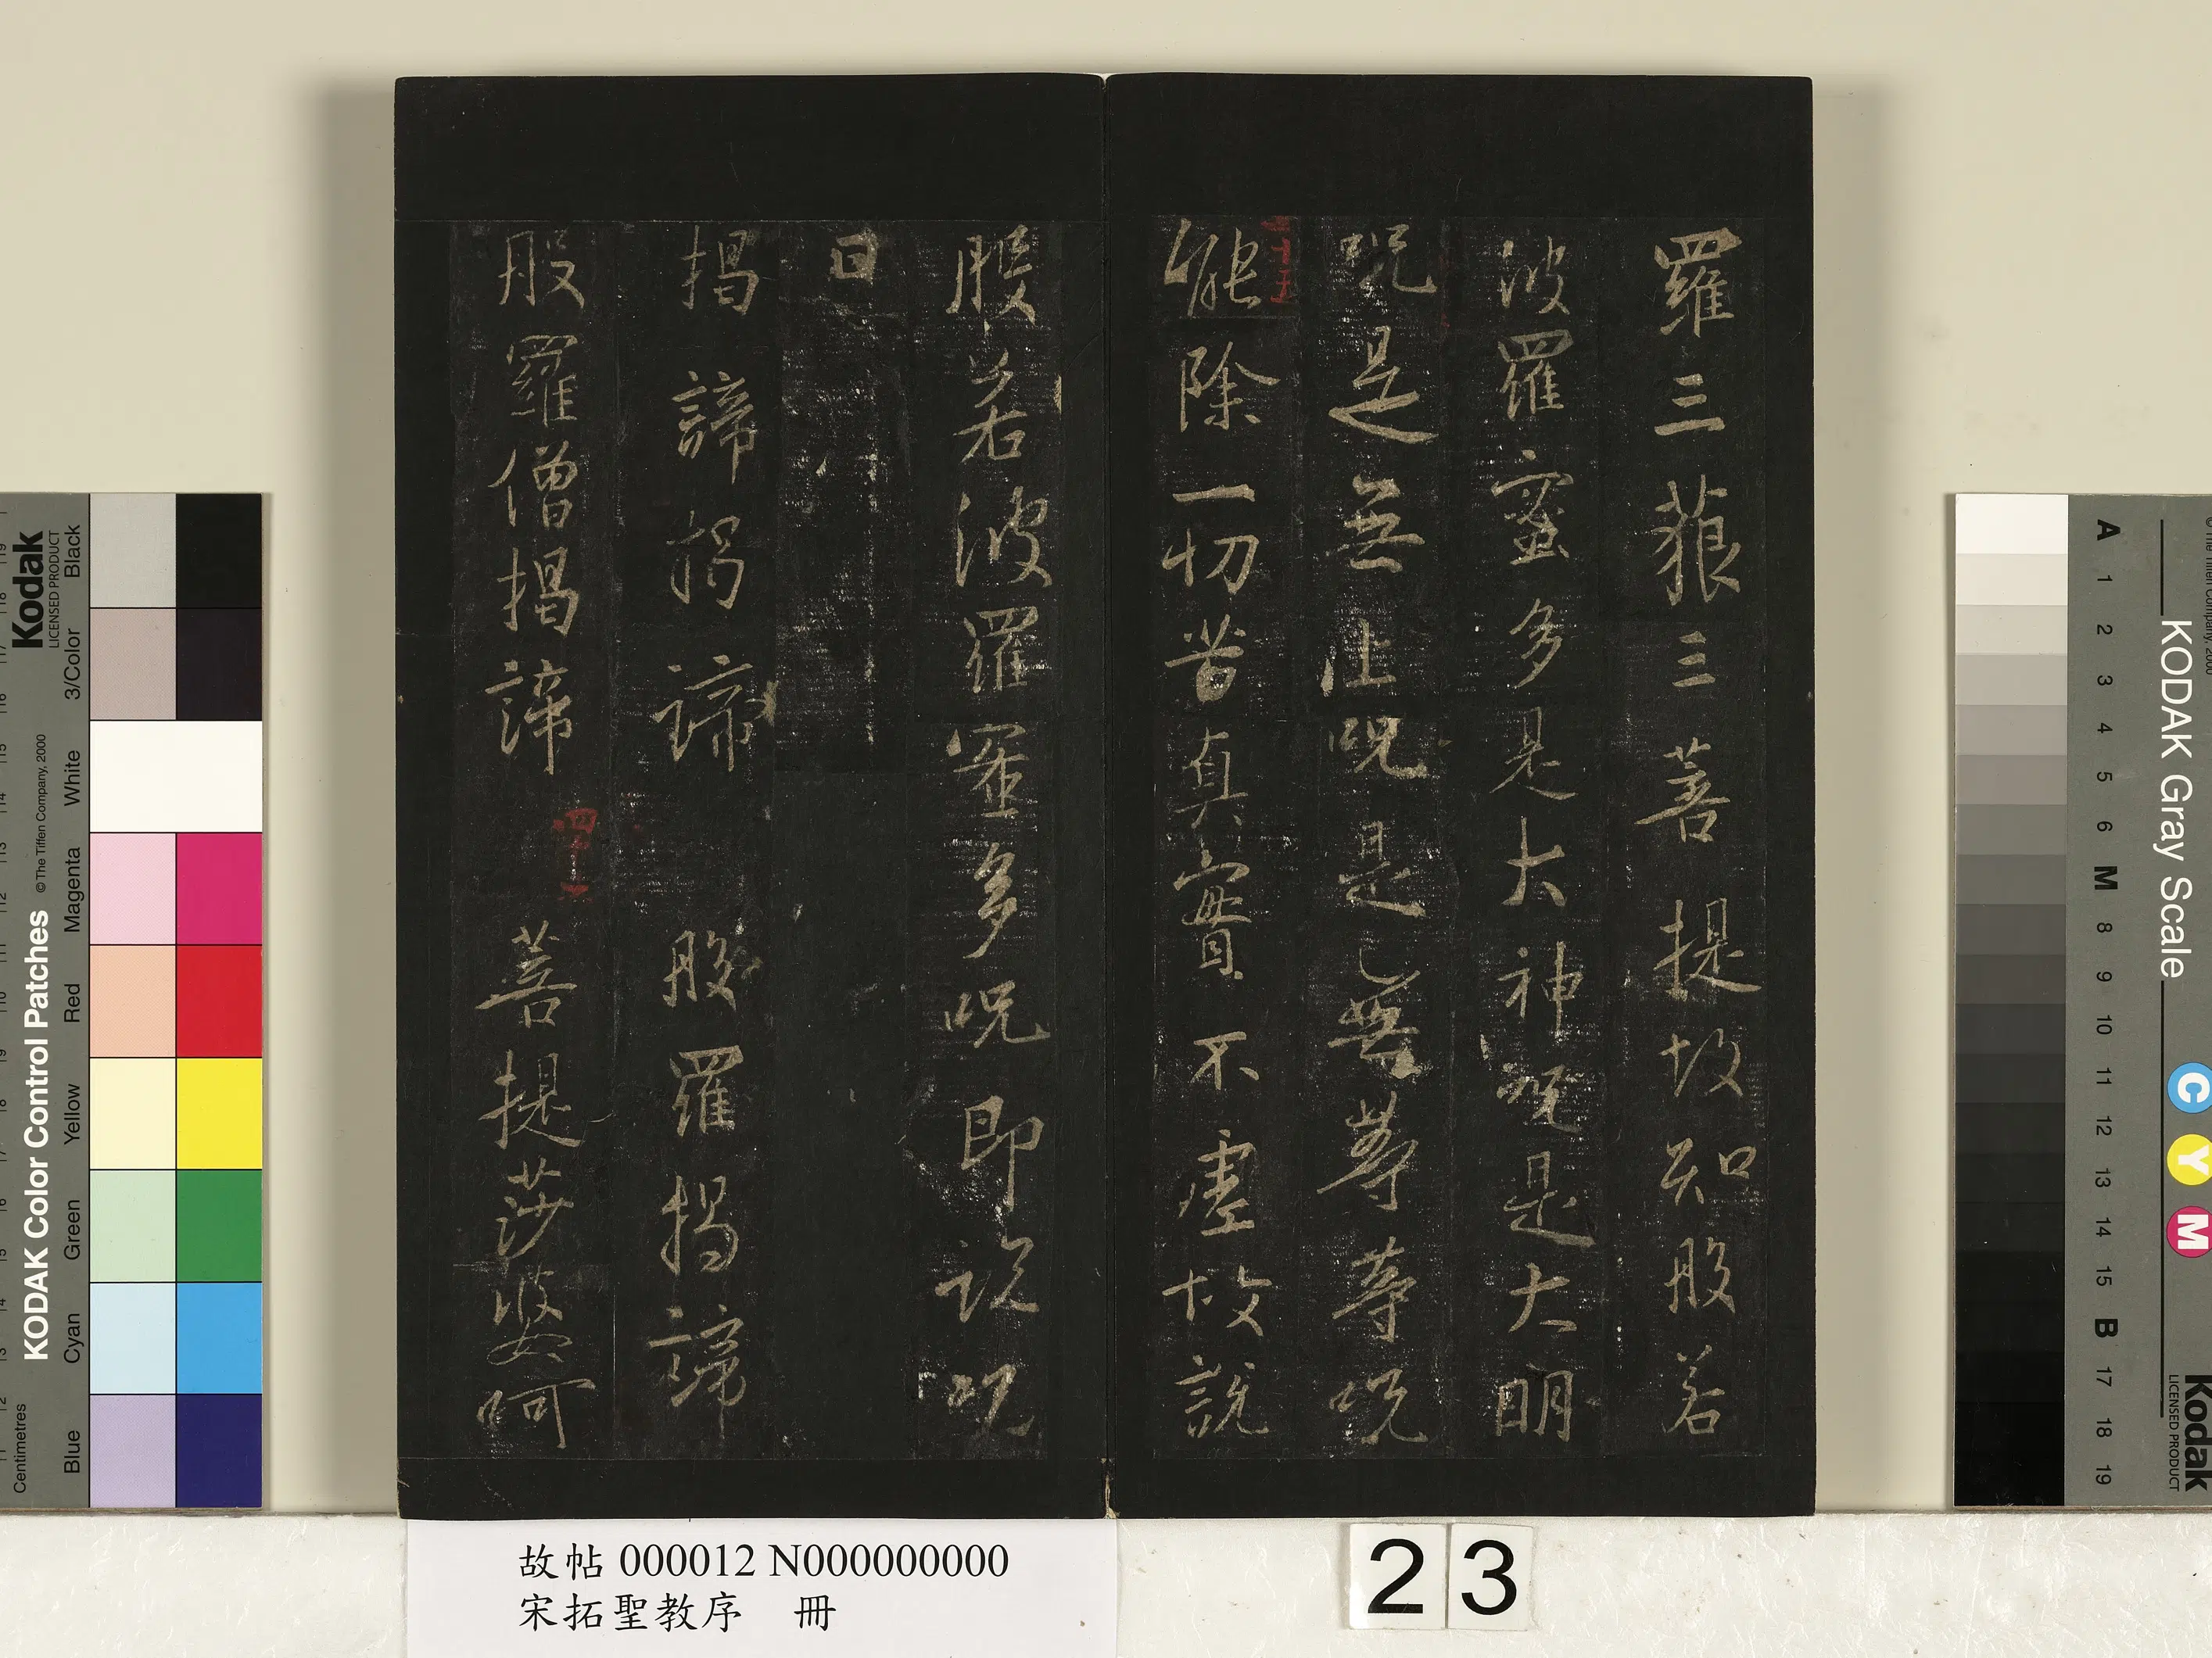 羅三藐三菩提故知般若
波羅蜜多是大神咒是大明
咒是無上咒是無等等咒
能除一切苦真實不虛故說
般若波羅蜜多咒即說咒
曰
揭諦揭諦 般羅揭諦
般羅僧揭諦 菩提莎婆呵
四十六
故帖 000012 N000000000
宋拓聖教序 冊
23
KODAK Color Control Patches
© The Tiffen Company, 2000
Kodak
LICENSED PRODUCT
Black
3/Color
White
Magenta
Red
Yellow
Green
Cyan
Blue
Centimetres
KODAK Gray Scale
Kodak
LICENSED PRODUCT
A 1 2 3 4 5 6 M 8 9 10 11 12 13 14 15 B 17 18 19
C Y M